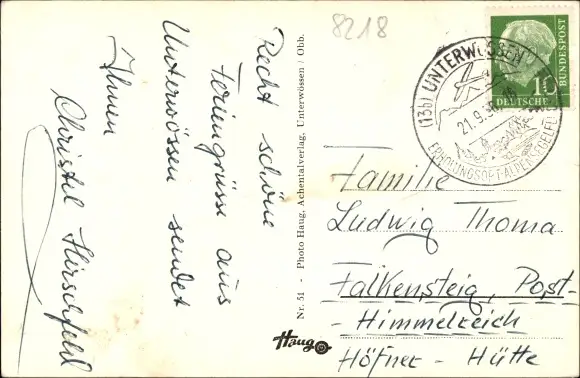 8218
Recht schöne
Feriengrüsse aus
Unterwössen sendet
Ihnen
Christel Hirschfeld
Nr. 51 - Photo Haug, Achentalverlag, Unterwössen / Obb.
Haug
10
DEUTSCHE
BUNDESPOST
(13b) UNTERWÖSSEN
21.9.56
Familie
Ludwig Thoma
Falkensteig, Post-
-Himmelreich
Höfner-Hütte